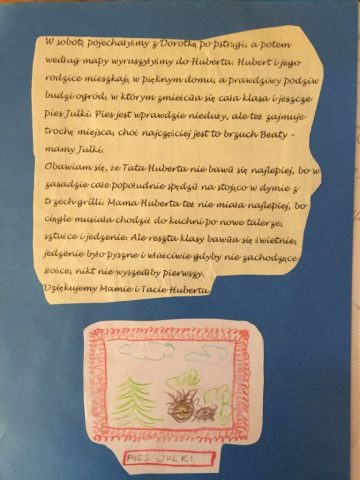 W sobotę pojechałyśmy z Dorotką po pstrągi, a potem
według mapy wyruszyłyśmy do Huberta. Hubert i jego
rodzice mieszkają w pięknym domu, a prawdziwy podziw
budzi ogród, w którym zmieściła się cała klasa i jeszcze
pies Julki. Pies jest wprawdzie nieduży, ale też zajmuje
trochę miejsca, choć najczęściej jest to brzuch Beaty –
mamy Julki.
Obawiam się, że Tata Huberta nie bawił się najlepiej, bo w
zasadzie całe popołudnie spędził na stojąco w dymie z
trzech grilli. Mama Huberta też nie miała najlepiej, bo
ciągle musiała chodzić do kuchni po nowe talerze,
sztućce i jedzenie. Ale reszta klasy bawiła się świetnie,
jedzenie było pyszne i właściwie gdyby nie zachodzące
słońce, nikt nie wyszedłby pierwszy.
Dziękujemy Mamie i Tacie Huberta.
PIES JULKI